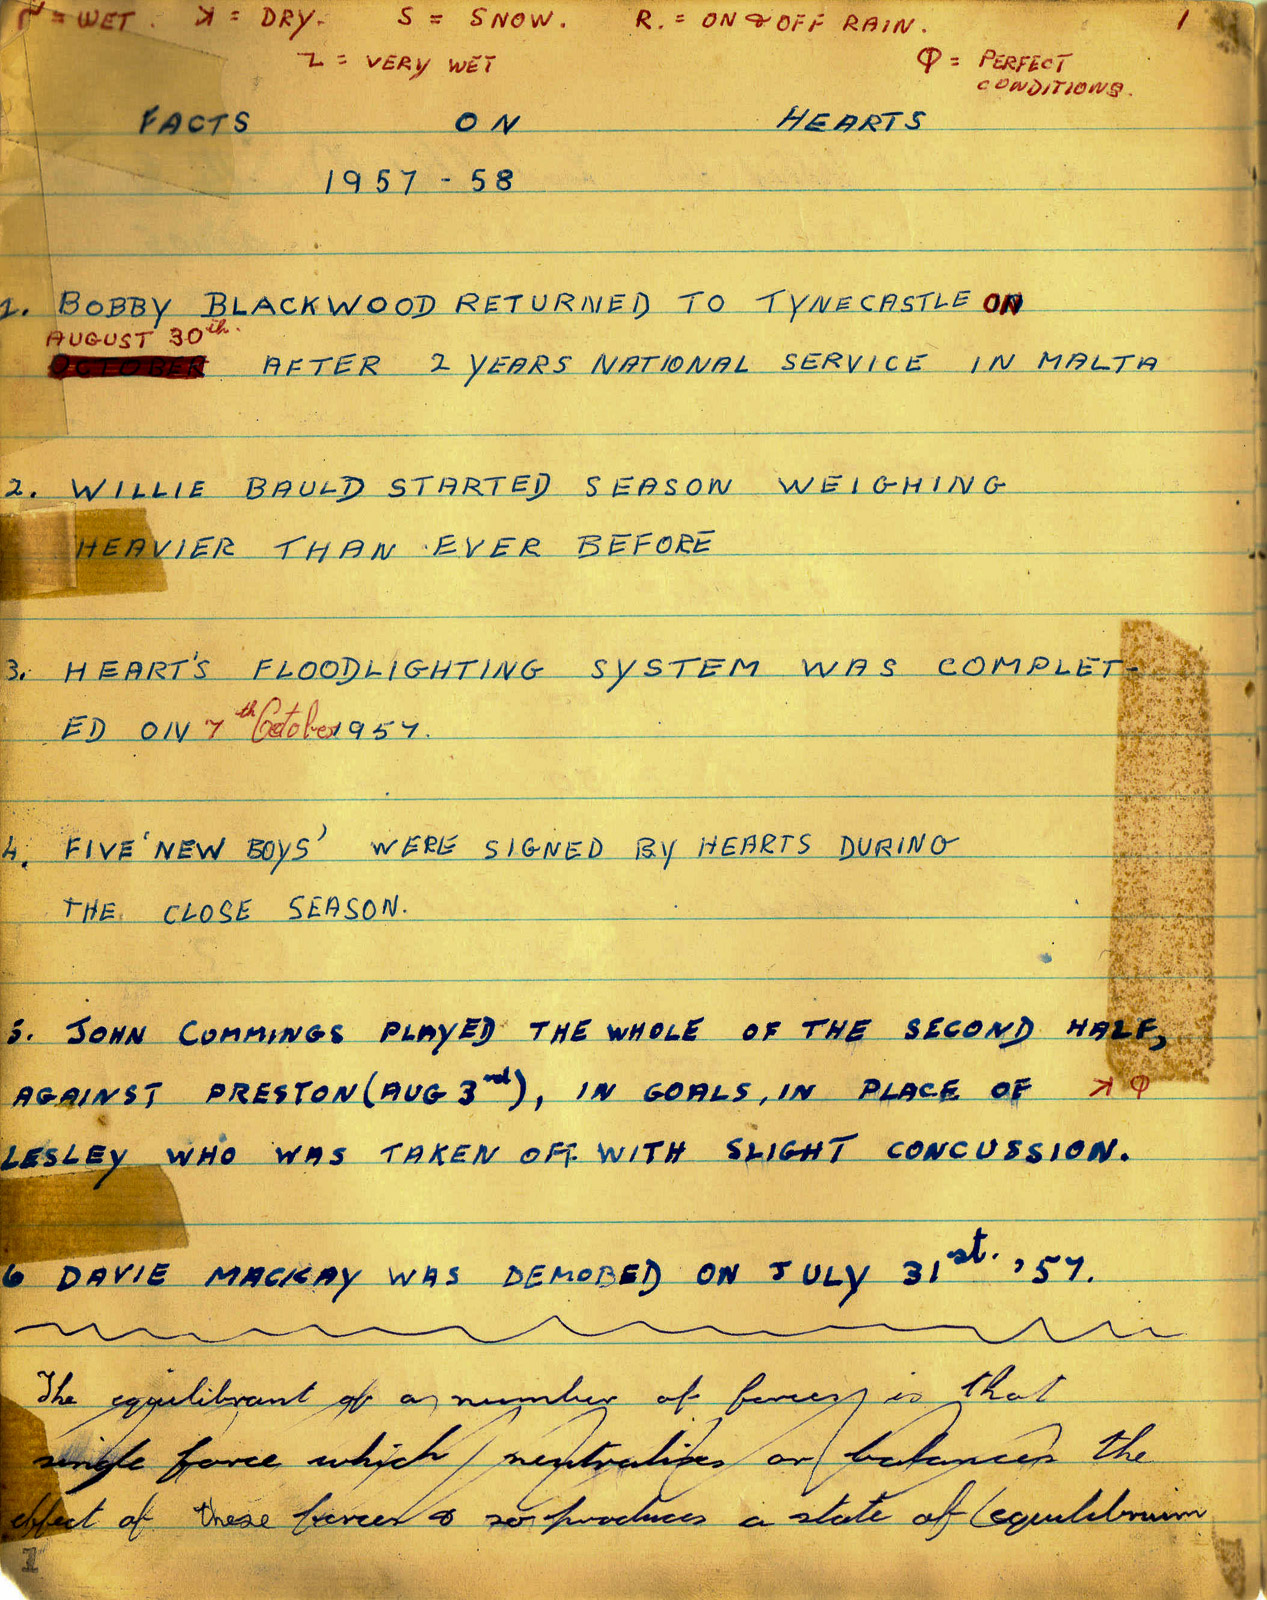 = WET. ꓘ = DRY. S = SNOW. R. = ON & OFF RAIN. 1
Z = VERY WET Φ = PERFECT
CONDITIONS.
FACTS ON HEARTS
1957 - 58
1. BOBBY BLACKWOOD RETURNED TO TYNECASTLE ON
AUGUST 30th.
OCTOBER AFTER 2 YEARS NATIONAL SERVICE IN MALTA
2. WILLIE BAULD STARTED SEASON WEIGHING
HEAVIER THAN EVER BEFORE
3. HEART'S FLOODLIGHTING SYSTEM WAS COMPLET-
ED ON 7th October 1957.
4. FIVE 'NEW BOYS' WERE SIGNED BY HEARTS DURING
THE CLOSE SEASON.
5. JOHN CUMMINGS PLAYED THE WHOLE OF THE SECOND HALF,
AGAINST PRESTON (AUG 3rd), IN GOALS, IN PLACE OF ꓘ Φ
LESLEY WHO WAS TAKEN OFF WITH SLIGHT CONCUSSION.
6 DAVIE MACKAY WAS DEMOBED ON JULY 31st. '57.
The equilibrant of a number of forces is that
single force which neutralises or balances the
effect of these forces & so produces a state of equilibrium
1